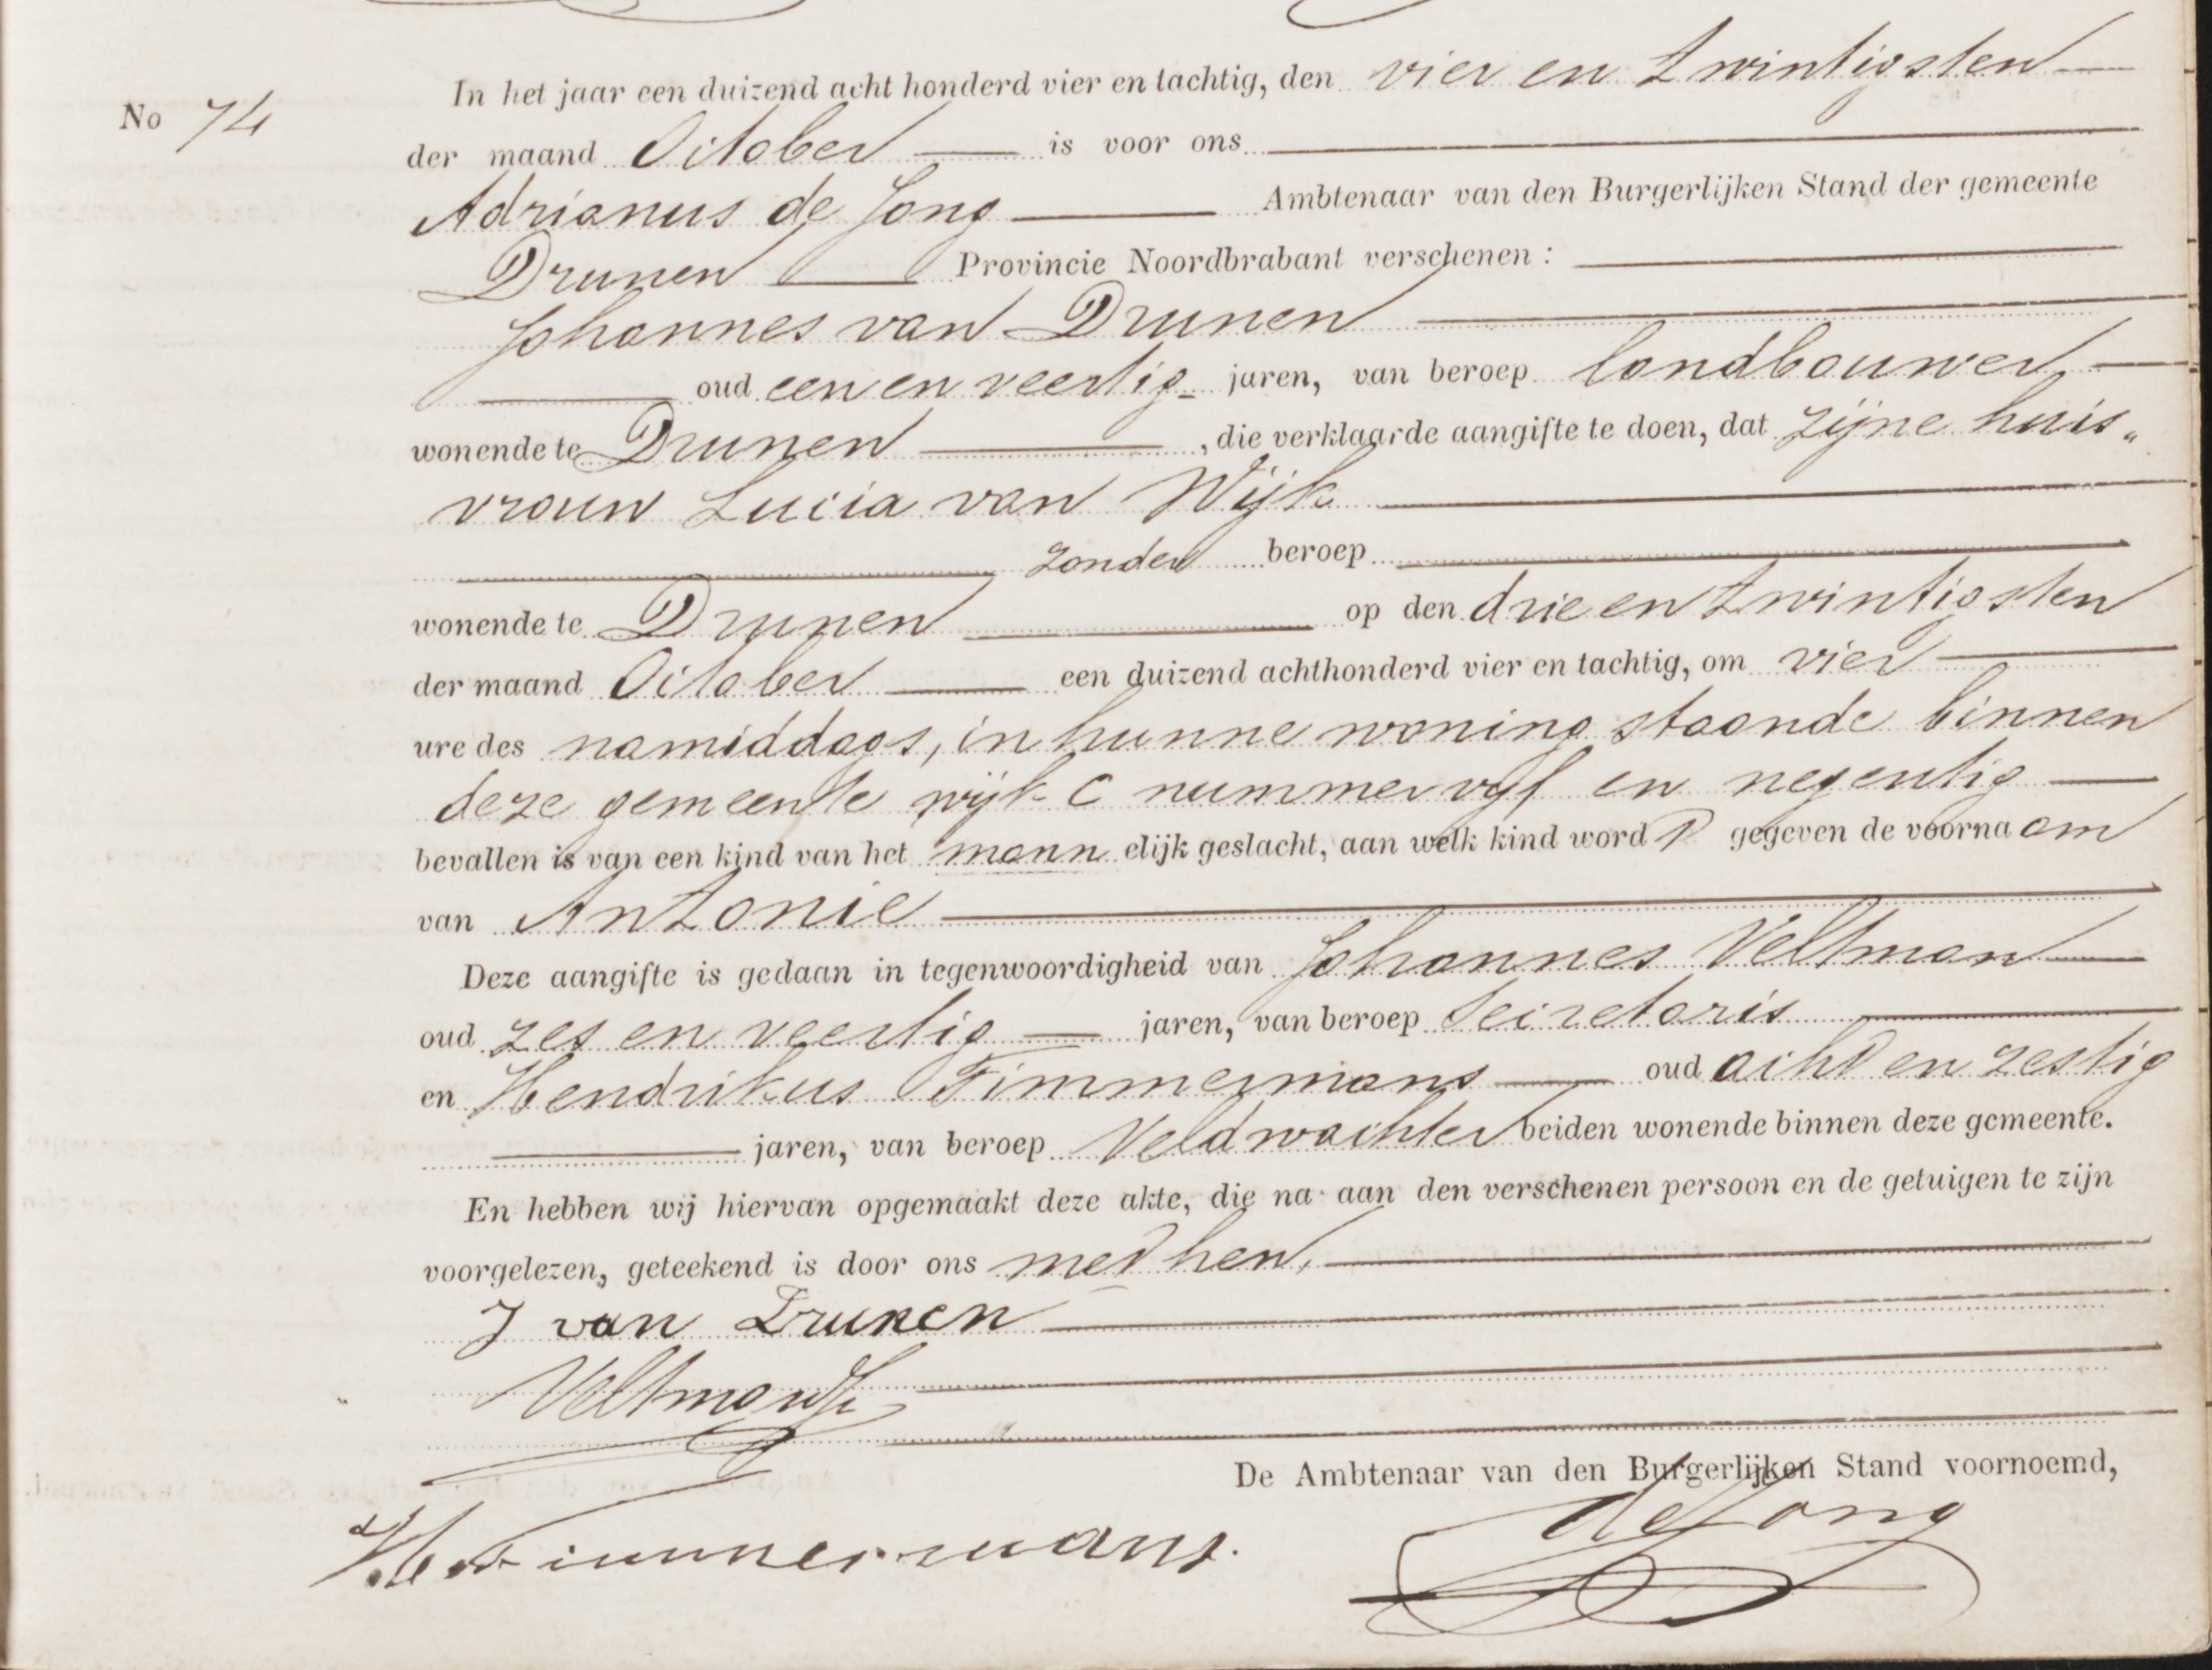 No 74
In het jaar een duizend acht honderd vier en tachtig, den vier en twintigsten
der maand October is voor ons
Adrianus de Jong Ambtenaar van den Burgerlijken Stand der gemeente
Drunen Provincie Noordbrabant verschenen:
Johannes van Drunen
oud een en veertig jaren, van beroep landbouwer
wonende te Drunen, die verklaarde aangifte te doen, dat zijne huis„
vrouw Lucia van Wijk
zonder beroep
wonende te Drunen op den drie en twintigsten
der maand October een duizend achthonderd vier en tachtig, om vier
ure des namiddags, in hunne woning staande binnen
deze gemeente wijk C nummer vijf en negentig
bevallen is van een kind van het mannelijk geslacht, aan welk kind wordt gegeven de voornaam
van Antonie
Deze aangifte is gedaan in tegenwoordigheid van Johannes Veltman
oud zes en veertig jaren, van beroep Secretaris
en Hendrikus Timmermans oud acht en zestig
jaren, van beroep Veldwachter beiden wonende binnen deze gemeente.
En hebben wij hiervan opgemaakt deze akte, die na aan den verschenen persoon en de getuigen te zijn
voorgelezen, geteekend is door ons met hen.
J van Drunen
Veltman
De Ambtenaar van den Burgerlijken Stand voornoemd,
H. Timmermans.
de Jong